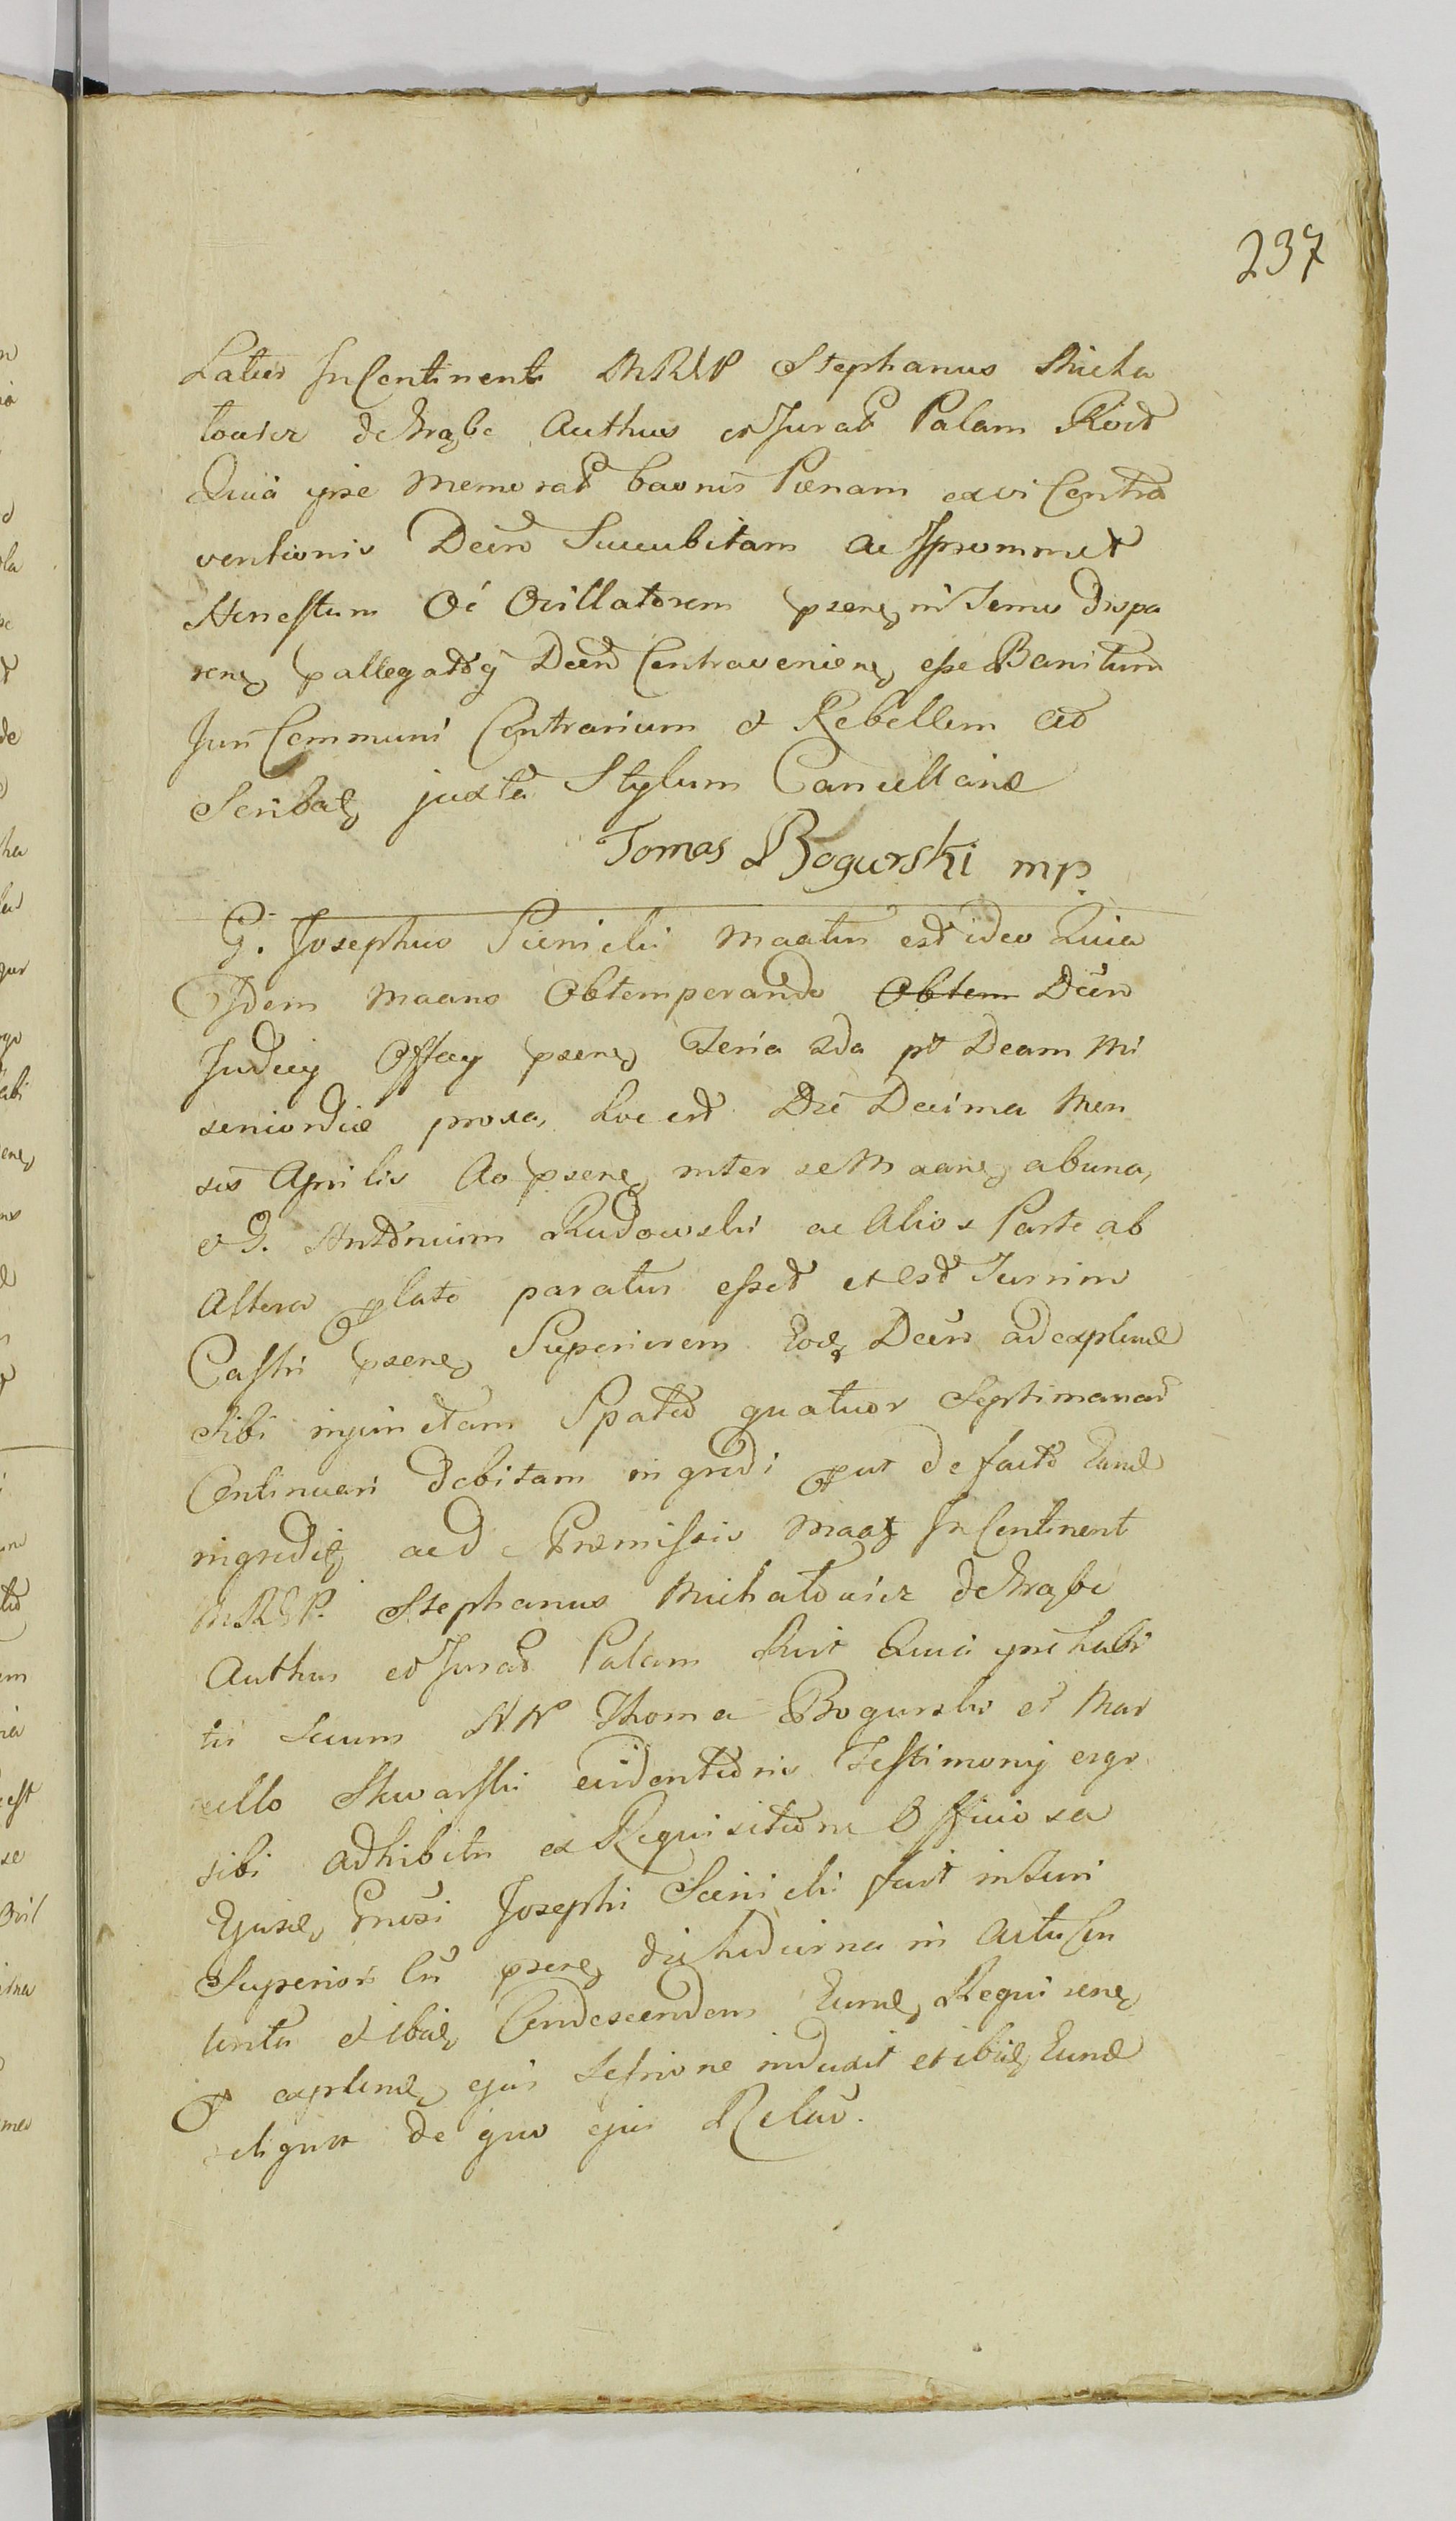 237
Latus In Continenti MRGP Stephanus Micha
towicz de Grąbe Authus et Jurat Palam Rcit
Quia ipse memorat banni Pœnam ex vi Contra
ventionis Decro Succubitam ac Ipsummet
Honestum Oć Oćillatorem psenę in Termo Dispa
renę pallegatoq Decro Contravenienę esse Banitum
Juri Communi Contrarium & Rebellem ad
Scribatę juxta Stylum Cancellariæ
Tomas Bogurski mp.
G. Josephus Sienicki maatur est ideo Quia
Idem maans Obtemperando Obtem Decro
Judicij Officy psenę Feria 2da pt Dcam Mi
sericordiæ proxa, hoc est Die Decima Men
sis Aprilis Ao psenę inter se Maanę ab una,
et G. Antonium Rudowski ac Alios Parte ab
Altera plato paratus esset et est Turrim
Castri psenę Superiorem Eodę Decro ad explend
Sibi injunctam Spatio quatuor Septimanar
Continuari debitam ingredi put de facto Eand
ingreditę ac d Præmissis maatę In Continent
MRGP. Stephanus Michałowicz de Grąbe
Authus et Jurat Palam Rcit Quia ipse habi
tis Secum NN Thoma Bogurski et Mar
cello Skwarski evidentioris Testimonij ergo
sibi adhibitis ex Requisitione Officiosa
Ejusd, Gnosi Josephi Sienicki fuit in Turi
Superiori Cri psenę die hodierna in Actu Con
tenta et ibidę Condescendem Eund, Requirenę
p explend, ejus Sessione induxit et ibidę Eund
reliquit de quo ejus Relao.